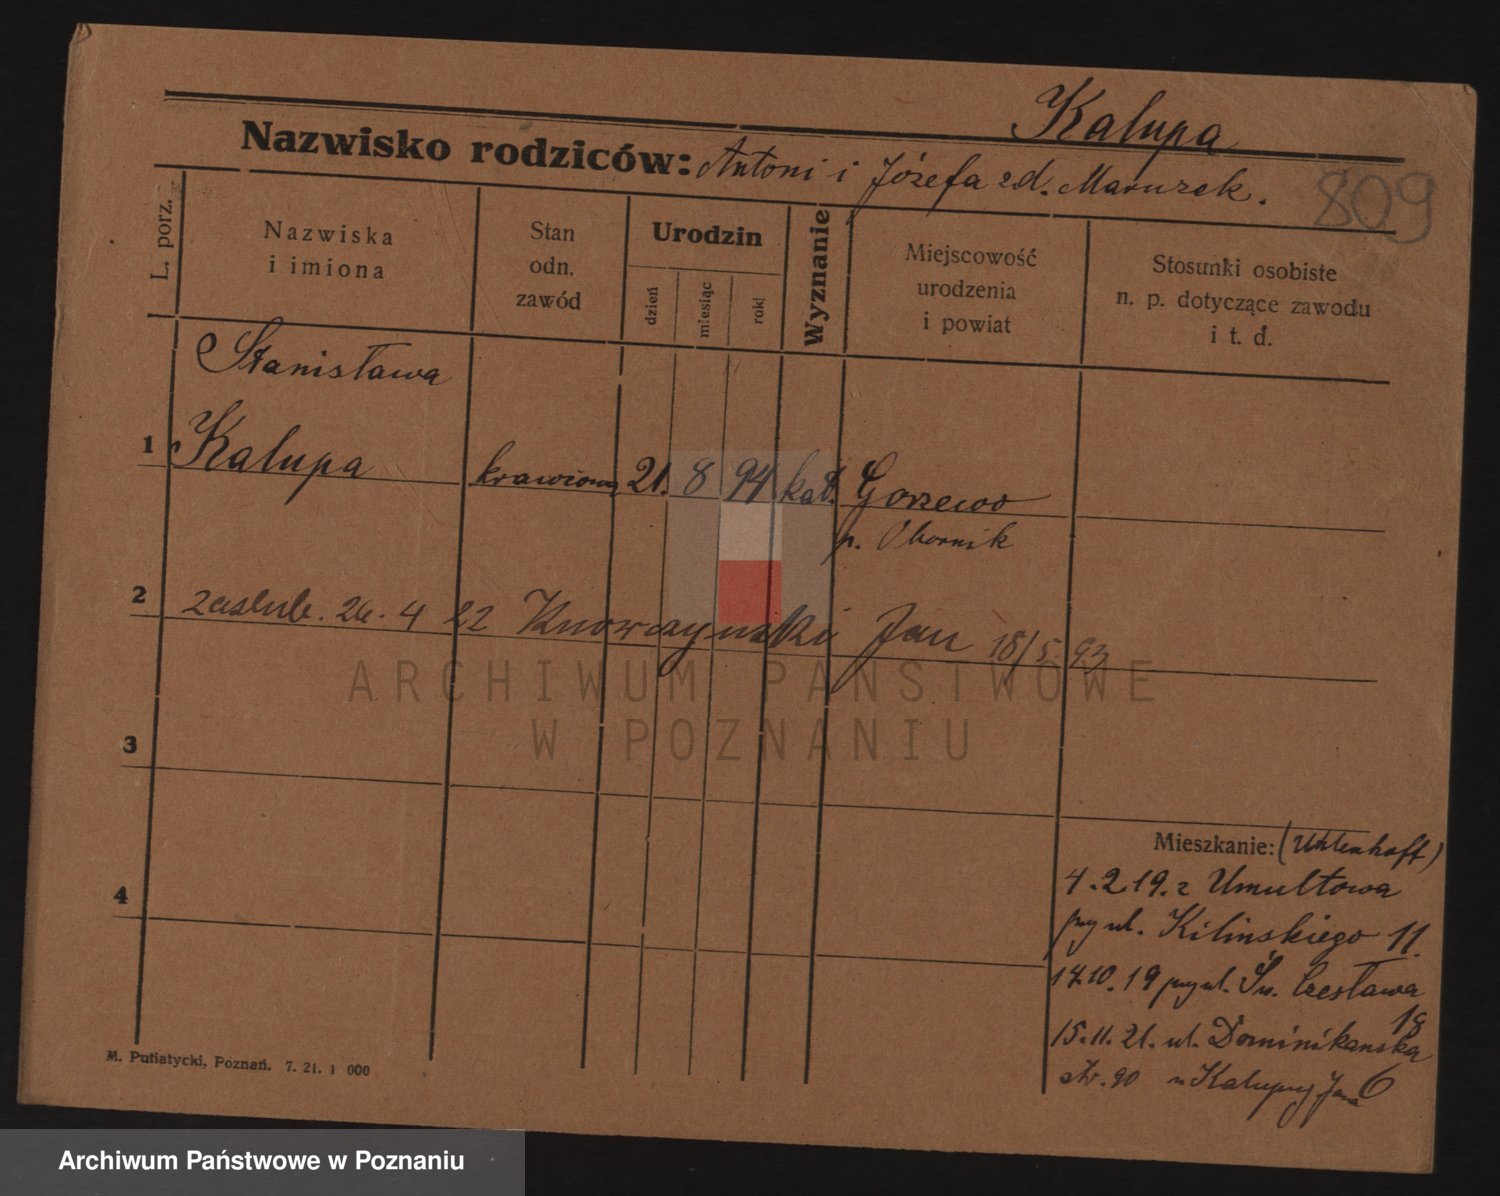 Kalupa
Nazwisko rodziców: Antoni i Józefa zd. Maruszek.
809
L. porz.
Nazwiska
i imiona
Stan
odn.
zawód
Urodzin
dzień
miesiąc
rok
Wyznanie
Miejscowość
urodzenia
i powiat
Stosunki osobiste
n. p. dotyczące zawodu
i t. d.
Stanisława
1 Kalupa krawcowa 21. 8 94 kat. Gorzewo
p. Obornik
2 zaslub. 26. 4 22 Jan 18/5 93
3
4
Mieszkanie: (Uhlenhoff)
4.2 19. z Umultowa
przy ul. Kilinskiego 11.
17.10.19 przy ul. Św. Czesława
18
15.11.21. ul. Dominikanska
6
str. 90 u Kalupy Jana
M. Putiatycki, Poznań. 7. 21. 1 000
ARCHIWUM PAŃSTWOWE
W POZNANIU
Archiwum Państwowe w Poznaniu